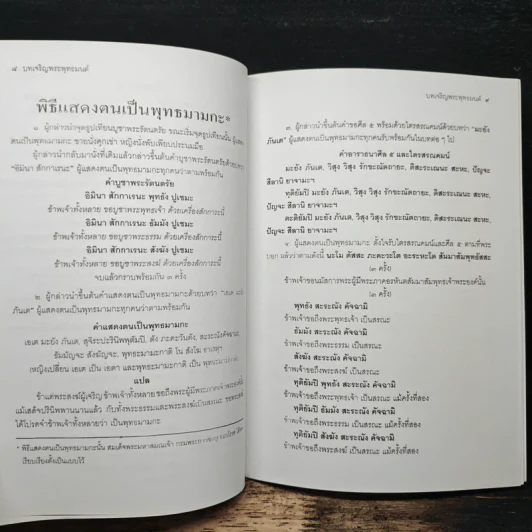 ๘ บทเจริญพระพุทธมนต์
พิธีแสดงตนเป็นพุทธมามกะ*
๑. ผู้กล่าวนำจุดธูปเทียนบูชาพระรัตนตรัย ขณะเริ่มจุดธูปเทียนนั้น ผู้แสดง
ตนเป็นพุทธมามกะ ชายนั่งคุกเข่า หญิงนั่งพับเพียบประนมมือ
ผู้กล่าวนำกลับมานั่งที่เดิมแล้วกล่าวขึ้นต้นคำบูชาพระรัตนตรัยด้วยบทว่า
"อิมินา สักกาเรนะ" ผู้แสดงตนเป็นพุทธมามกะทุกคนว่าตามพร้อมกัน
คำบูชาพระรัตนตรัย
อิมินา สักกาเรนะ พุทธัง ปูเชมะ
ข้าพเจ้าทั้งหลาย ขอบูชาพระพุทธเจ้า ด้วยเครื่องสักการะนี้
อิมินา สักกาเรนะ ธัมมัง ปูเชมะ
ข้าพเจ้าทั้งหลาย ขอบูชาพระธรรม ด้วยเครื่องสักการะนี้
อิมินา สักกาเรนะ สังฆัง ปูเชมะ
ข้าพเจ้าทั้งหลาย ขอบูชาพระสงฆ์ ด้วยเครื่องสักการะนี้
จบแล้วกราบพร้อมกัน ๓ ครั้ง
๒. ผู้กล่าวนำขึ้นต้นคำแสดงตนเป็นพุทธมามกะด้วยบทว่า "เอเต มะยัง
ภันเต" ผู้แสดงตนเป็นพุทธมามกะทุกคนว่าตามพร้อมกัน
คำแสดงตนเป็นพุทธมามกะ
เอเต มะยัง ภันเต, สุจิระปะรินิพพุตัมปิ, ตัง ภะคะวันตัง, สะระณัง คัจฉามะ,
ธัมมัญจะ สังฆัญจะ, พุทธะมามะกาติ โน สังโฆ ธาเรตุฯ
หญิงเปลี่ยน เอเต เป็น เอตา และพุทธะมามะกาติ เป็น
แปล
ข้าแต่พระสงฆ์ผู้เจริญ ข้าพเจ้าทั้งหลาย ขอถึงพระผู้มีพระภาคเจ้าพระองค์นั้น
แม้เสด็จปรินิพพานนานแล้ว กับทั้งพระธรรมและพระสงฆ์เป็นสรณะ ขอพระสงฆ์
ได้โปรดจำข้าพเจ้าทั้งหลายว่า เป็นพุทธมามกะ
* พิธีแสดงตนเป็นพุทธมามกะนั้น สมเด็จพระมหาสมณเจ้า กรมพระยาวชิรญาณวโรรส
เรียบเรียงตั้งเป็นแบบไว้
บทเจริญพระพุทธมนต์ ๙
๓. ผู้กล่าวนำขึ้นต้นคำขอศีล ๕ พร้อมด้วยไตรสรณคมน์ด้วยบทว่า "มะยัง
ภันเต" ผู้แสดงตนเป็นพุทธมามกะทุกคนรับพร้อมกันในบทต่อ ๆ ไป
คำอาราธนาศีล ๕ และไตรสรณคมน์
มะยัง ภันเต, วิสุง วิสุง รักขะณัตถายะ, ติสะระเณนะ สะหะ, ปัญจะ
สีลานิ ยาจามะฯ
ทุติยัมปิ มะยัง ภันเต, วิสุง วิสุง รักขะณัตถายะ, ติสะระเณนะ สะหะ,
ปัญจะ สีลานิ ยาจามะฯ
ตะติยัมปิ มะยัง ภันเต, วิสุง วิสุง รักขะณัตถายะ, ติสะระเณนะ สะหะ,
ปัญจะ สีลานิ ยาจามะฯ
๔. ผู้แสดงตนเป็นพุทธมามกะ ตั้งใจรับไตรสรณคมน์และศีล ๕ ตามที่พระ
บอก แล้วว่าตามดังนี้ นะโม ตัสสะ ภะคะวะโต อะระหะโต สัมมาสัมพุทธัสสะ
(๓ ครั้ง)
ข้าพเจ้าขอนมัสการพระผู้มีพระภาคอรหันตสัมมาสัมพุทธเจ้าพระองค์นั้น
(๓ ครั้ง)
พุทธัง สะระณัง คัจฉามิ
ข้าพเจ้าขอถึงพระพุทธเจ้า เป็นสรณะ
ธัมมัง สะระณัง คัจฉามิ
ข้าพเจ้าขอถึงพระธรรม เป็นสรณะ
สังฆัง สะระณัง คัจฉามิ
ข้าพเจ้าขอถึงพระสงฆ์ เป็นสรณะ
ทุติยัมปิ พุทธัง สะระณัง คัจฉามิ
ข้าพเจ้าขอถึงพระพุทธเจ้า เป็นสรณะ แม้ครั้งที่สอง
ทุติยัมปิ ธัมมัง สะระณัง คัจฉามิ
ข้าพเจ้าขอถึงพระธรรม เป็นสรณะ แม้ครั้งที่สอง
ทุติยัมปิ สังฆัง สะระณัง คัจฉามิ
ข้าพเจ้าขอถึงพระสงฆ์ เป็นสรณะ แม้ครั้งที่สอง